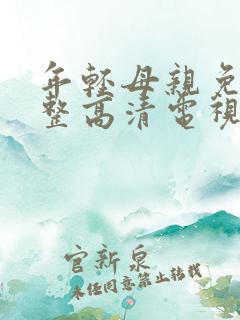 年輕母親免
整高清電視
官新泉
未经同意禁止转载